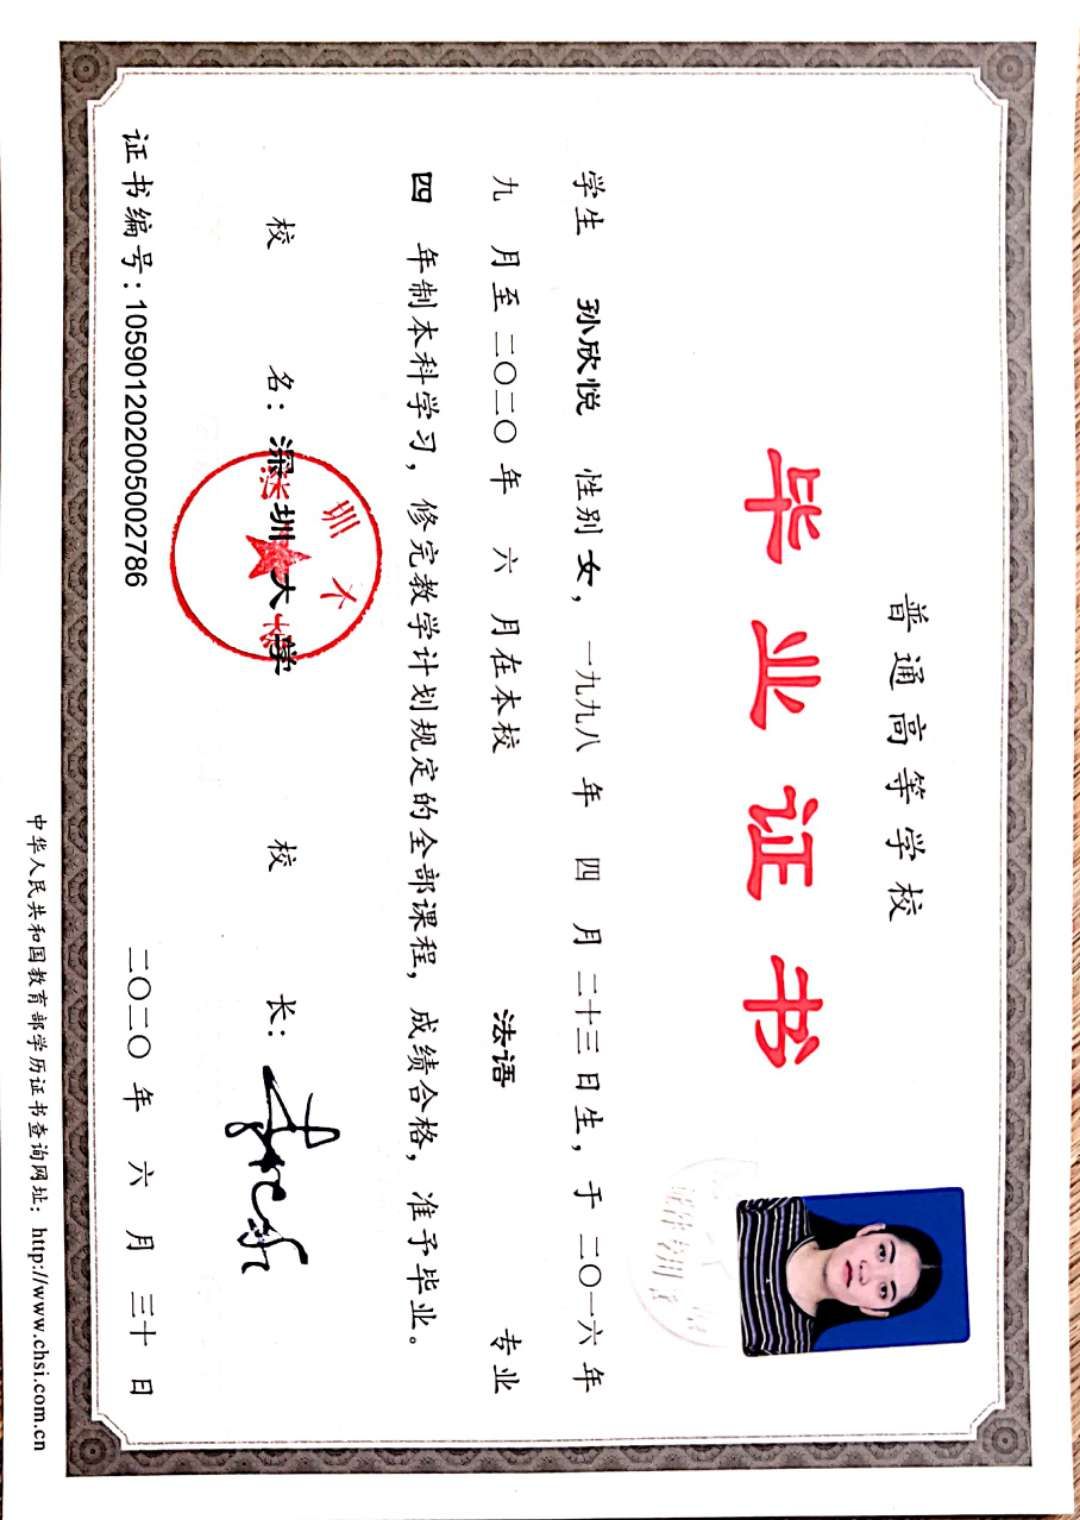 普通高等学校
毕业证书
学生 孙欣悦 性别 女，一九九八年 四 月 二十三日生，于 二〇一六年
九 月至 二〇二〇 年 六 月在本校 法语 专业
四 年制本科学习，修完教学计划规定的全部课程，成绩合格，准予毕业。
校 名：深圳大学 校 长：
证书编号：105901202005002786 二〇二〇 年 六 月 三十 日
中华人民共和国教育部学历证书查询网址：http://www.chsi.com.cn